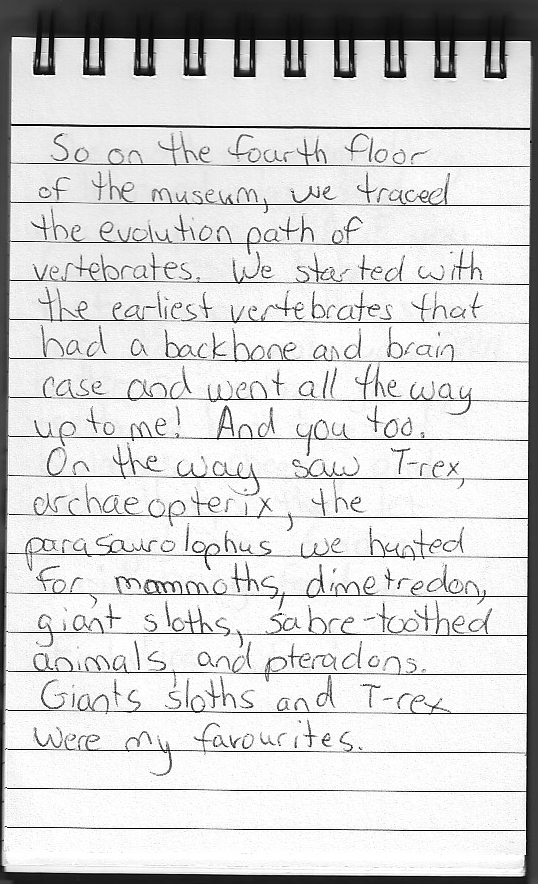 So on the fourth floor
of the museum, we traced
the evolution path of
vertebrates. We started with
the earliest vertebrates that
had a backbone and brain
case and went all the way
up to me! And you too.
On the way saw T-rex,
archaeopterix, the
parasaurolophus we hunted
for, mammoths, dimetredon,
giant sloths, sabre-toothed
animals, and pteradons.
Giants sloths and T-rex
were my favourites.